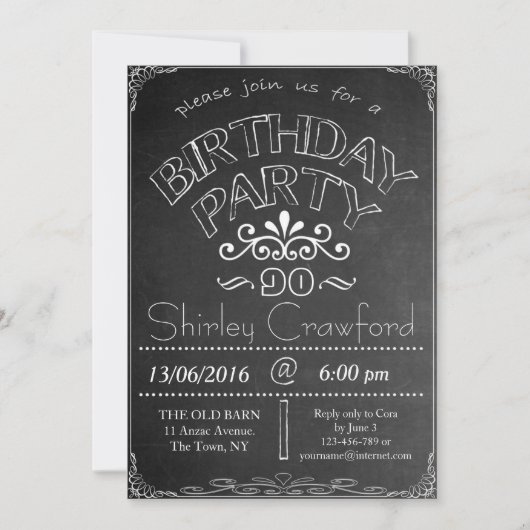 please join us for a
BIRTHDAY
PARTY
90
Shirley Crawford
13/06/2016 @ 6:00 pm
THE OLD BARN
11 Anzac Avenue.
The Town, NY
Reply only to Cora
by June 3
123-456-789 or
yourname@internet.com